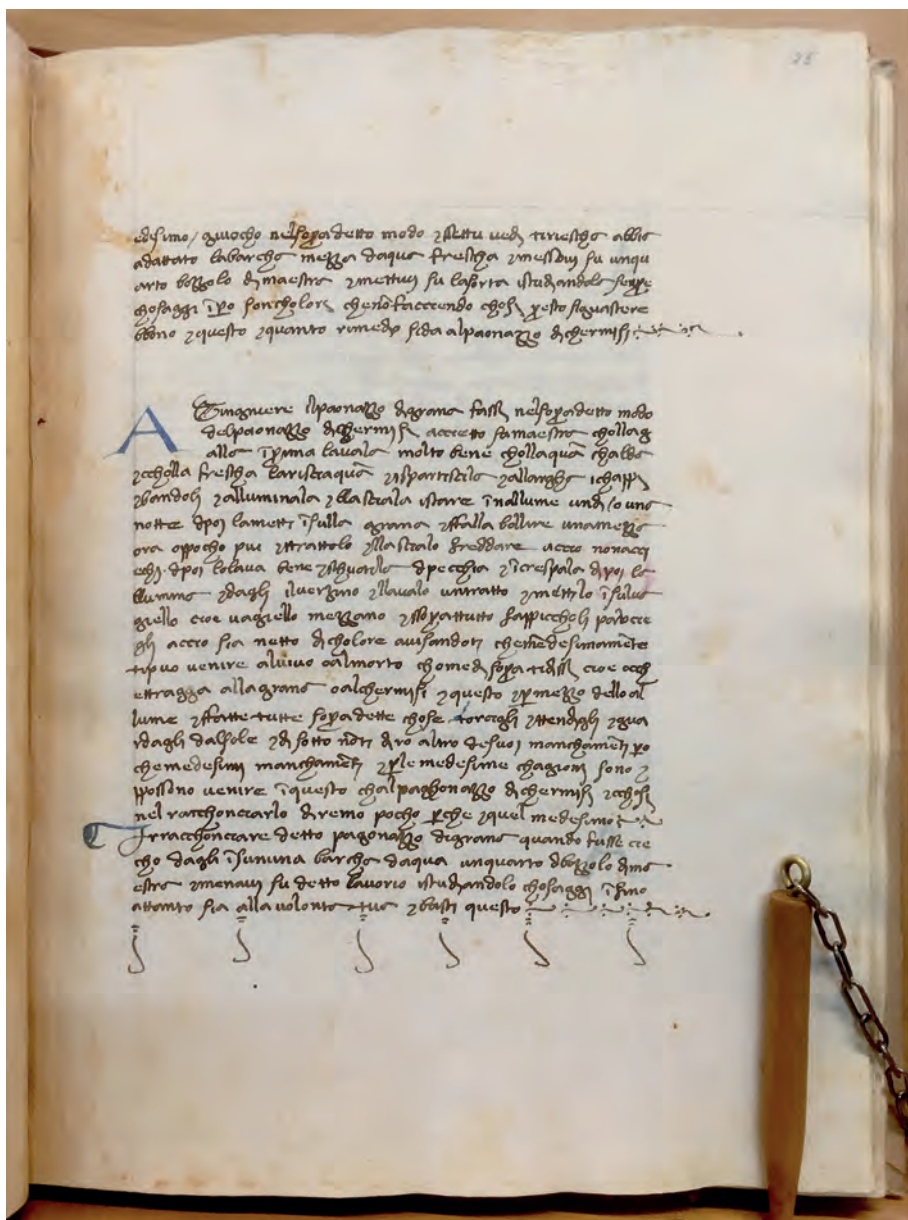 25
edesimo / giuocho nel sopradetto modo essettu vedi tiriescha abbia
adattato labarcha mezza daqua frescha emettivi su unqu
arto bozzolo dimaestra emettivi su lasorta istudiandola senpre
chosaggi i pero son cholori che nōfaccendo chosi presto siguastere
bbono equesto equanto rimedio sida alpaonazzo dichermisi
A Tingniere ilpaonazzo digrana fassi nelsopradetto modo
delpaonazzo dichermisi accietto famaestra chollag
alla i prima lavala molto bene chollaqua chalda
echolla frescha larisciaqua espartiscila eallargha ichappi
ebandoli ealluminala ellasciala istare īnallume undi / o una
notte dipoi lametti īsulla grana effalla bollire unamezza
ora oppocho piu ettrattolo ellascialo freddare accio nonacci
echi · dipoi lolava bene echuotila dpecchia eicrespala dipoi la
lluma edagli ilverzino ellavalo untratto emettilo īsulva
giello cioe vagiello mezzano essoprattutto fappiccholi parocie
gli accio sia netto dicholore avisandoti chemēdesimamēte
tipuo venire alvivo oalmorto chomedi sopra tidissi cioe cch
ettragga allagrana oalchermisi equesto epermezzo delloal
lume effatte tutte sopradette chose torciegli ettendigli egua
rdagli dalsole edi sotto nōti diro altro desuoi manchamēti pero
chemedesimi manchamēti eperle medesime chagioni sono e
ppossino venire īquesto chalpaghonazzo dichermisi echosi
nel racchonciarlo diremo pocho perche equel medesimo
Irracchonciare detto pagonazzo digrana quando fusse cie
cho dagli īsununa barcha daqua unquarto dbozzolo dima
estra emenavi su detto lavorio istudiandolo chosaggi īsino
attanto sia alla volonta tua ebasti questo